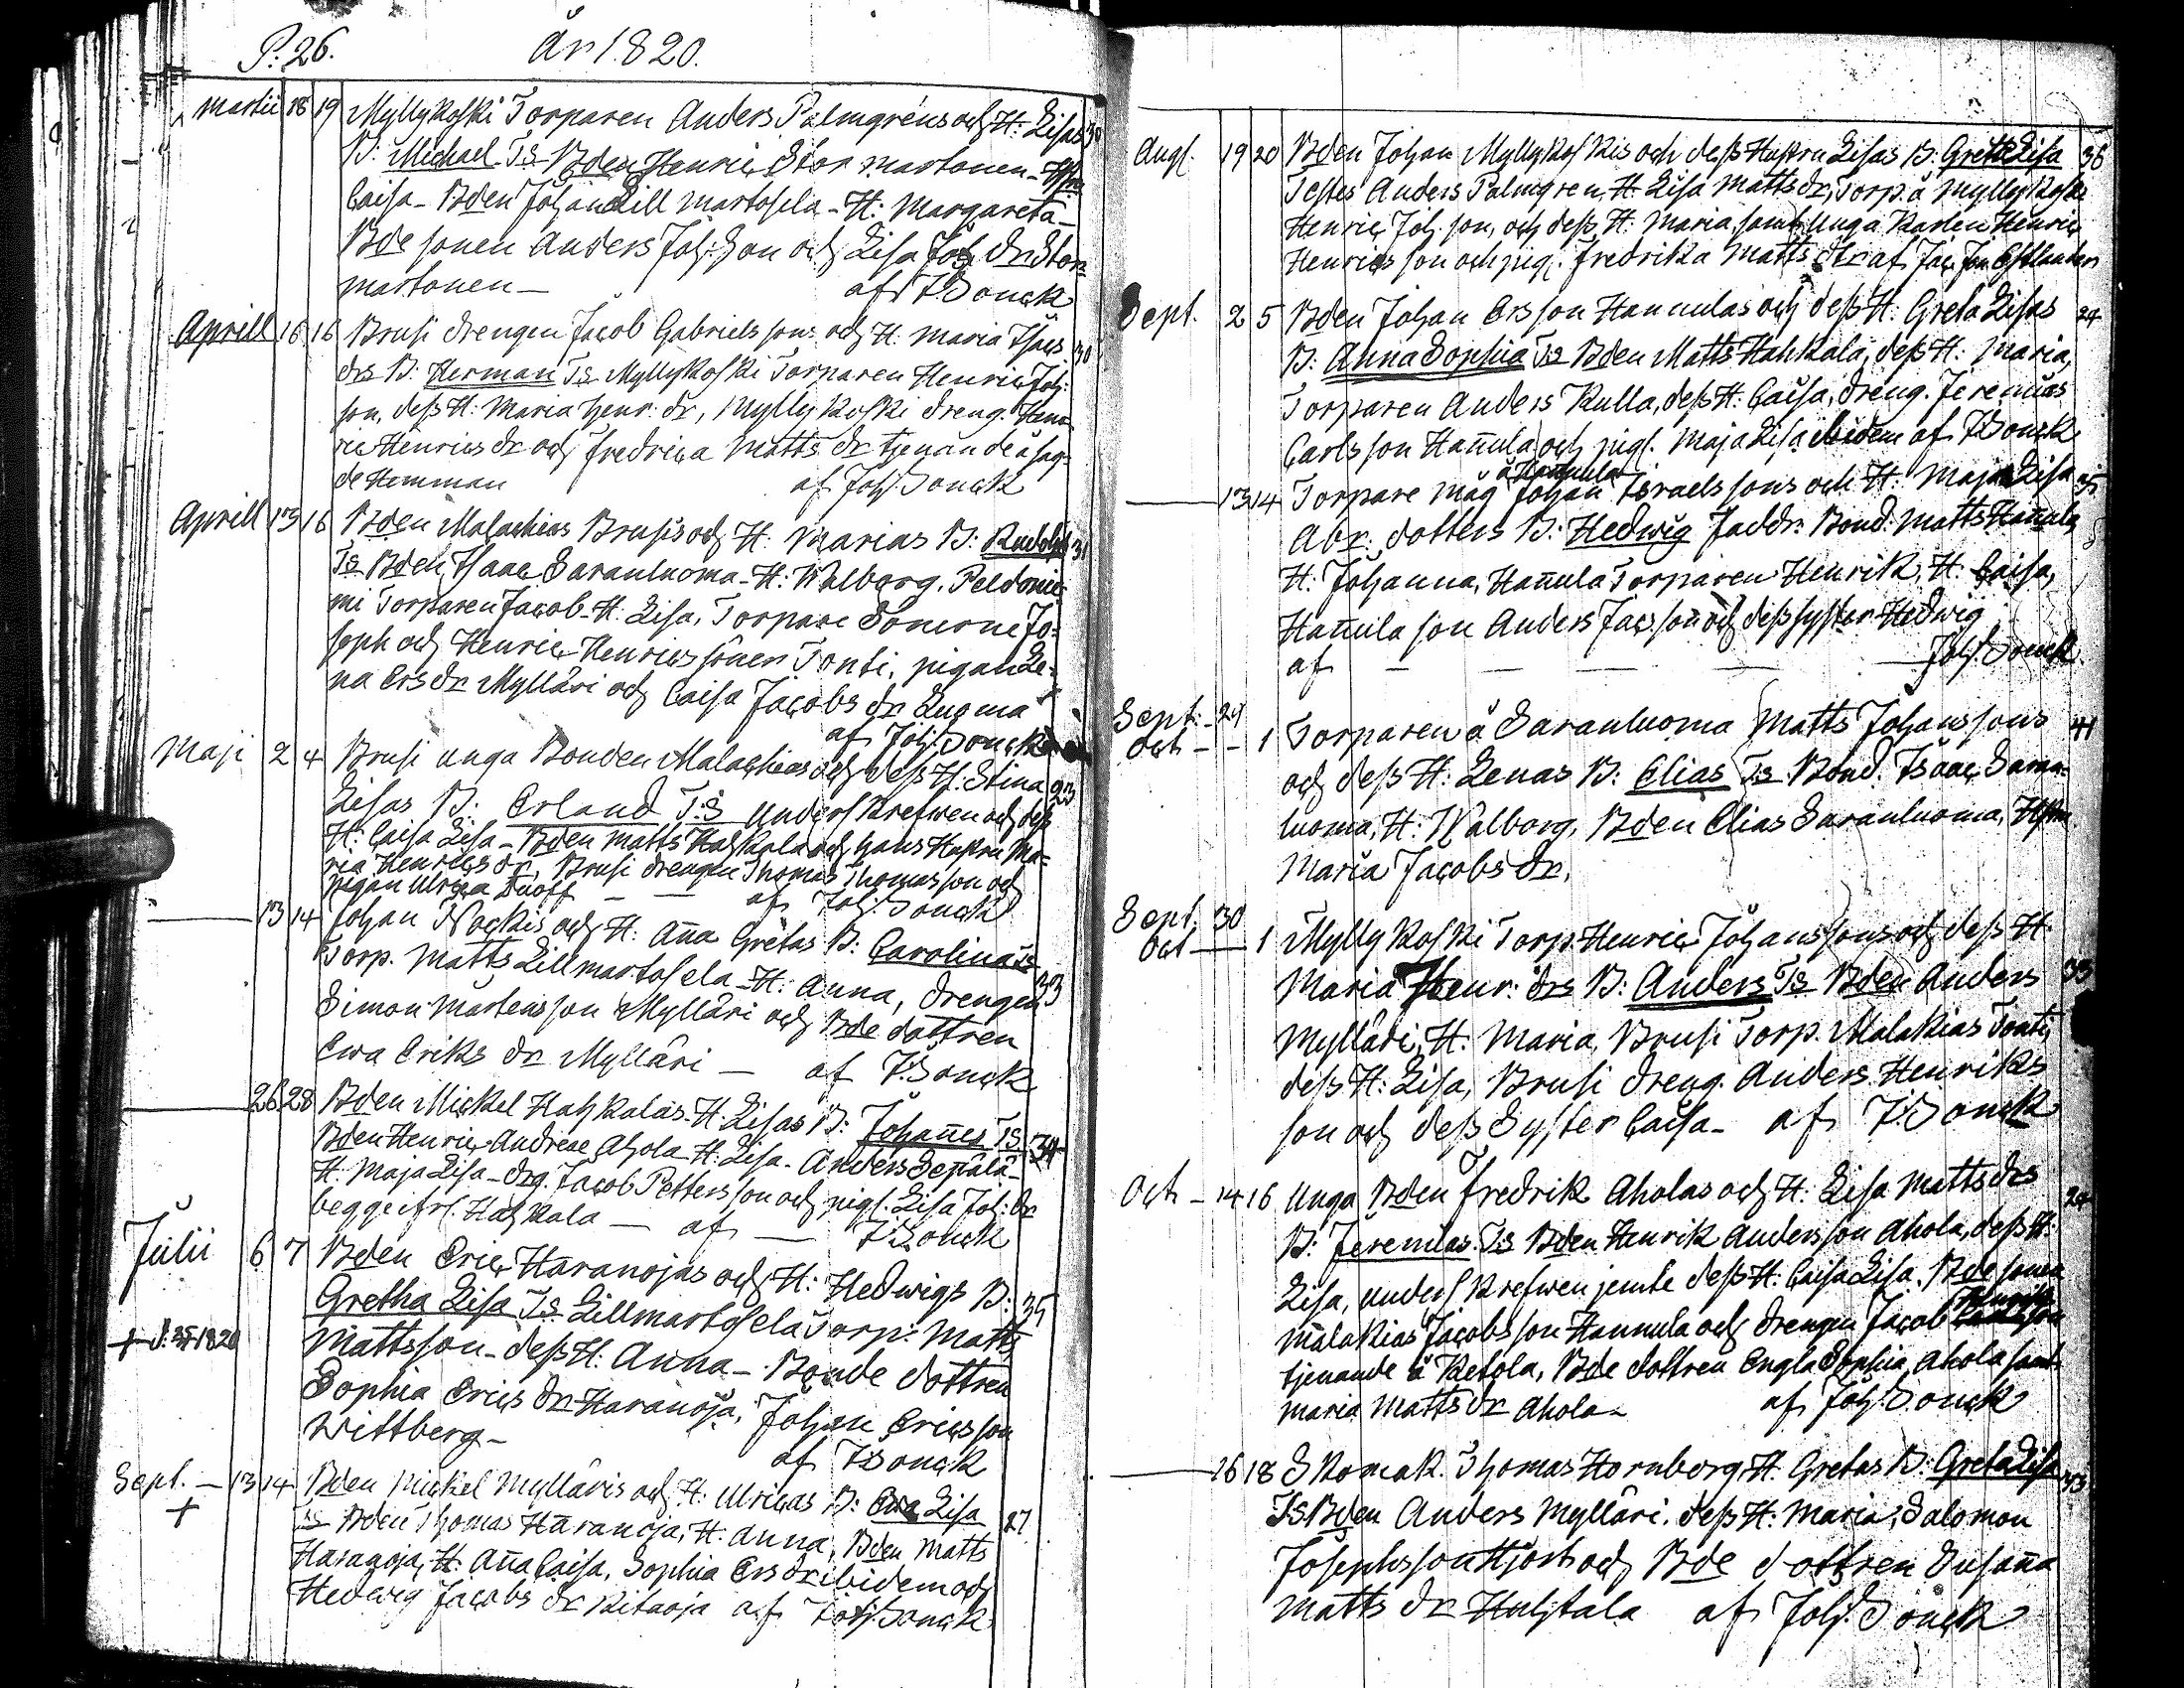 P. 26. År 1820.
Martii 18 19 Myllykoski Torparen Anders Palmgréns och H: Lisas 30
B: Michael Ts Bden Henric Stor martonen - Hstru
Caisa - Bden Johan Lill martosela - H: Margareta -
Bde sonen Anders Joh: Son och Lisa Joh: dr Stor
martonen - af J: Sonck
Aprill 16 16 Brusi drengen Jacob Gabriels sons och H: Maria Isacs 30
drs B: Herman Ts Myllykoski Torparen Henric Joh:
son, dess H: Maria Henr: dr, Myllykoski dreng. Hen-
ric Henrics dr och Fredrica Matts dr tjenande å sag-
de Hemman af Joh: Sonck
Aprill 13 16 Bden Malachias Brusis och H: Marias B: Rudolph 31
Ts Bden Isaac Saranluoma - H: Walborg. Peldonie
mi Torparen Jacob - H: Lisa, Torpare Sönerne Jo-
seph och Henric Henrics söner Tonti, pigan Le-
na Ers dr Mylläri och Caisa Jacobs dr Luoma
af Joh: Sonck
Maji 2 4 Brusi unga Bonden Malachias och dess H: Stina 23
Lisas B: Erland T:S Anders Krefwen och dess
H: Caisa Lisa - Bden Matts Hahkala och hans Hustru Ma-
ria Henrics dr, Brusi drengen Thomas Thomasson och
pigan Ulrica Duoff - - af Joh: Sonck
13 14 Johan Nockis och H: Aña Gretas B: Carolina Ts
Torp. Matts Lillmartosela - H: Anna, drengen 33
Simon Mårtensson Mylläri och Bde dottren
Ewa Eriks dr Mylläri - af J: Sonck
26 28 Bden Mickel Hahkalas H: Lisas B: Johañes Ts 34
Bden Henric Andreae Ahola H: Lisa - Anders Seppälä -
H: Maja Lisa - drg. Jacob Pettersson och pig. Lisa Joh: dr
begge ifr. Hahkala - af - J: Sonck
Julii 6 7 Bden Eric Haranojas och H: Hedwigs B: 35
Gretha Lisa Ts Lillmartosela Torp: Matts
+ d: 1820 Mattsson - dess H: Anna - Bonde dottren
Sophia Erics dr Haranoja, Johan Ericsson
Wittberg - af J: Sonck
Sept. - 13 14 Bden Mickel Mylläris och H: Ulricas B: Ewa Lisa 27
+ Ts Bden Thomas Haranoja, H: Anna, Bden Matts
Haranoja, H: Aña Caisa, Sophia Ers dr ibidem och
Hedwig Jacobs dr Kitaoja af Joh: Sonck
Augl. 19 20 Bden Johan Myllykoskis och dess Hustru Lisas B: Greta Lisa 36
Testes Anders Palmgren, H: Lisa Matts dr, Torp. å Myllykoski
Henric Joh. son, och dess H: Maria, samt Unga Karlen Henric
Henrics son och pig. Fredrika Matts dr af Jac. Joh Estlander
Sept. 2 5 Bden Johan Ersson Hannulas och dess H: Greta Lisas 24
B: Anna Sophia Ts Bden Matts Hahkala, dess H: Maria,
Torparen Anders Kulla, dess H: Caisa, dreng. Jeremias
Carlsson Hañula och pig. Maja Lisa ibidem af J: Sonck
å Hañula
13 14 Torpare måg Johan Israels sons och H: Maja Lisa 35
Abr. dotters B: Hedwig faddr. Bond: Matts Hañula
H: Johanna, Hañula Torparen Henrik, H: Caisa,
Hañula son Anders Jacsson och dess syster Hedwig
af - - - - Joh: Sonck
Sept. - 24
Oct - - 1 Torparen å Saranluoma Matts Johans sons 41
och dess H: Lenas B: Elias Ts Bond. Isaac Saran-
luoma, H: Walborg, Bden Elias Saranluoma, Hstru
Maria Jacobs dr.
Sept. 30
Oct - 1 Myllykoski Torp. Henric Johanssons och dess H.
Maria Henr: drs B: Anders Ts Bden Anders 33
Mylläri, H: Maria, Brusi Torp. Malakias Tonti,
dess H: Lisa, Brusi dreng. Anders Henriks
son och dess Syster Caisa - af J: Sonck
Oct - 14 16 Unga Bden Fredrik Aholas och H: Lisa Matts drs 24
B: Jeremias Ts Bden Henrik Andersson Ahola, dess H:
Lisa, Anders Krefwen jemte dess H: Caisa Lisa, Bde sonen
Malakias Jacobsson Hannula och drengen Jacob
tjenande å Ketola, Bde dottren Engla Sophia Ahola samt
Maria Matts dr Ahola - af Joh: Sonck
16 18 Skomak. Thomas Hornborg H: Gretas B: Greta Lisa 33
Ts Bden Anders Mylläri, dess H: Maria, Salomon
Josephsson Hjort och Bde dottren Susaña
Matts dr Huhtala af Joh: Sonck